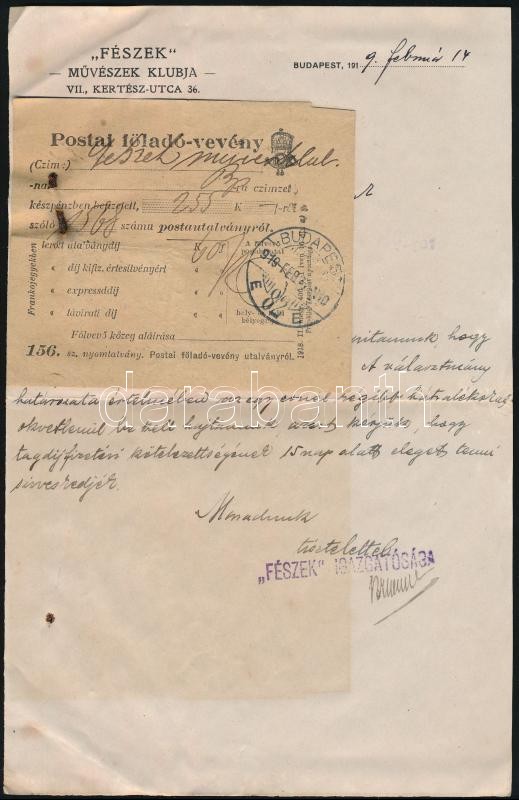 „FÉSZEK"
— MŰVÉSZEK KLUBJA —
VII., KERTÉSZ-UTCA 36.
BUDAPEST, 1919. február 14
Postai föladó-vevény
(Czim:) Fészek művészklub.
-nak Bp -ra czimzett
készpénzben befizetett, 255 K — f-ről
szóló 1568 számu postautalványról.
Frankojegyekben
lerótt utalványdij
dij kifiz. értesitvényért
expressdij
távirati dij
Fölvevő közeg aláirása
156. sz. nyomtatvány. Postai föladó-vevény utalványról.
BUDAPEST
919 FEB
hogy
A választmány
határozata értelmében az egy évnél régibb hátralékosal
okvetlenül be kell hajtanunk, azért kérjük, hogy
tagdijfizetési kötelezettségének 15 nap alatt eleget tenni
sziveskedjék.
Maradunk
tisztelettel
„FÉSZEK" IGAZGATÓSÁGA
darabanth